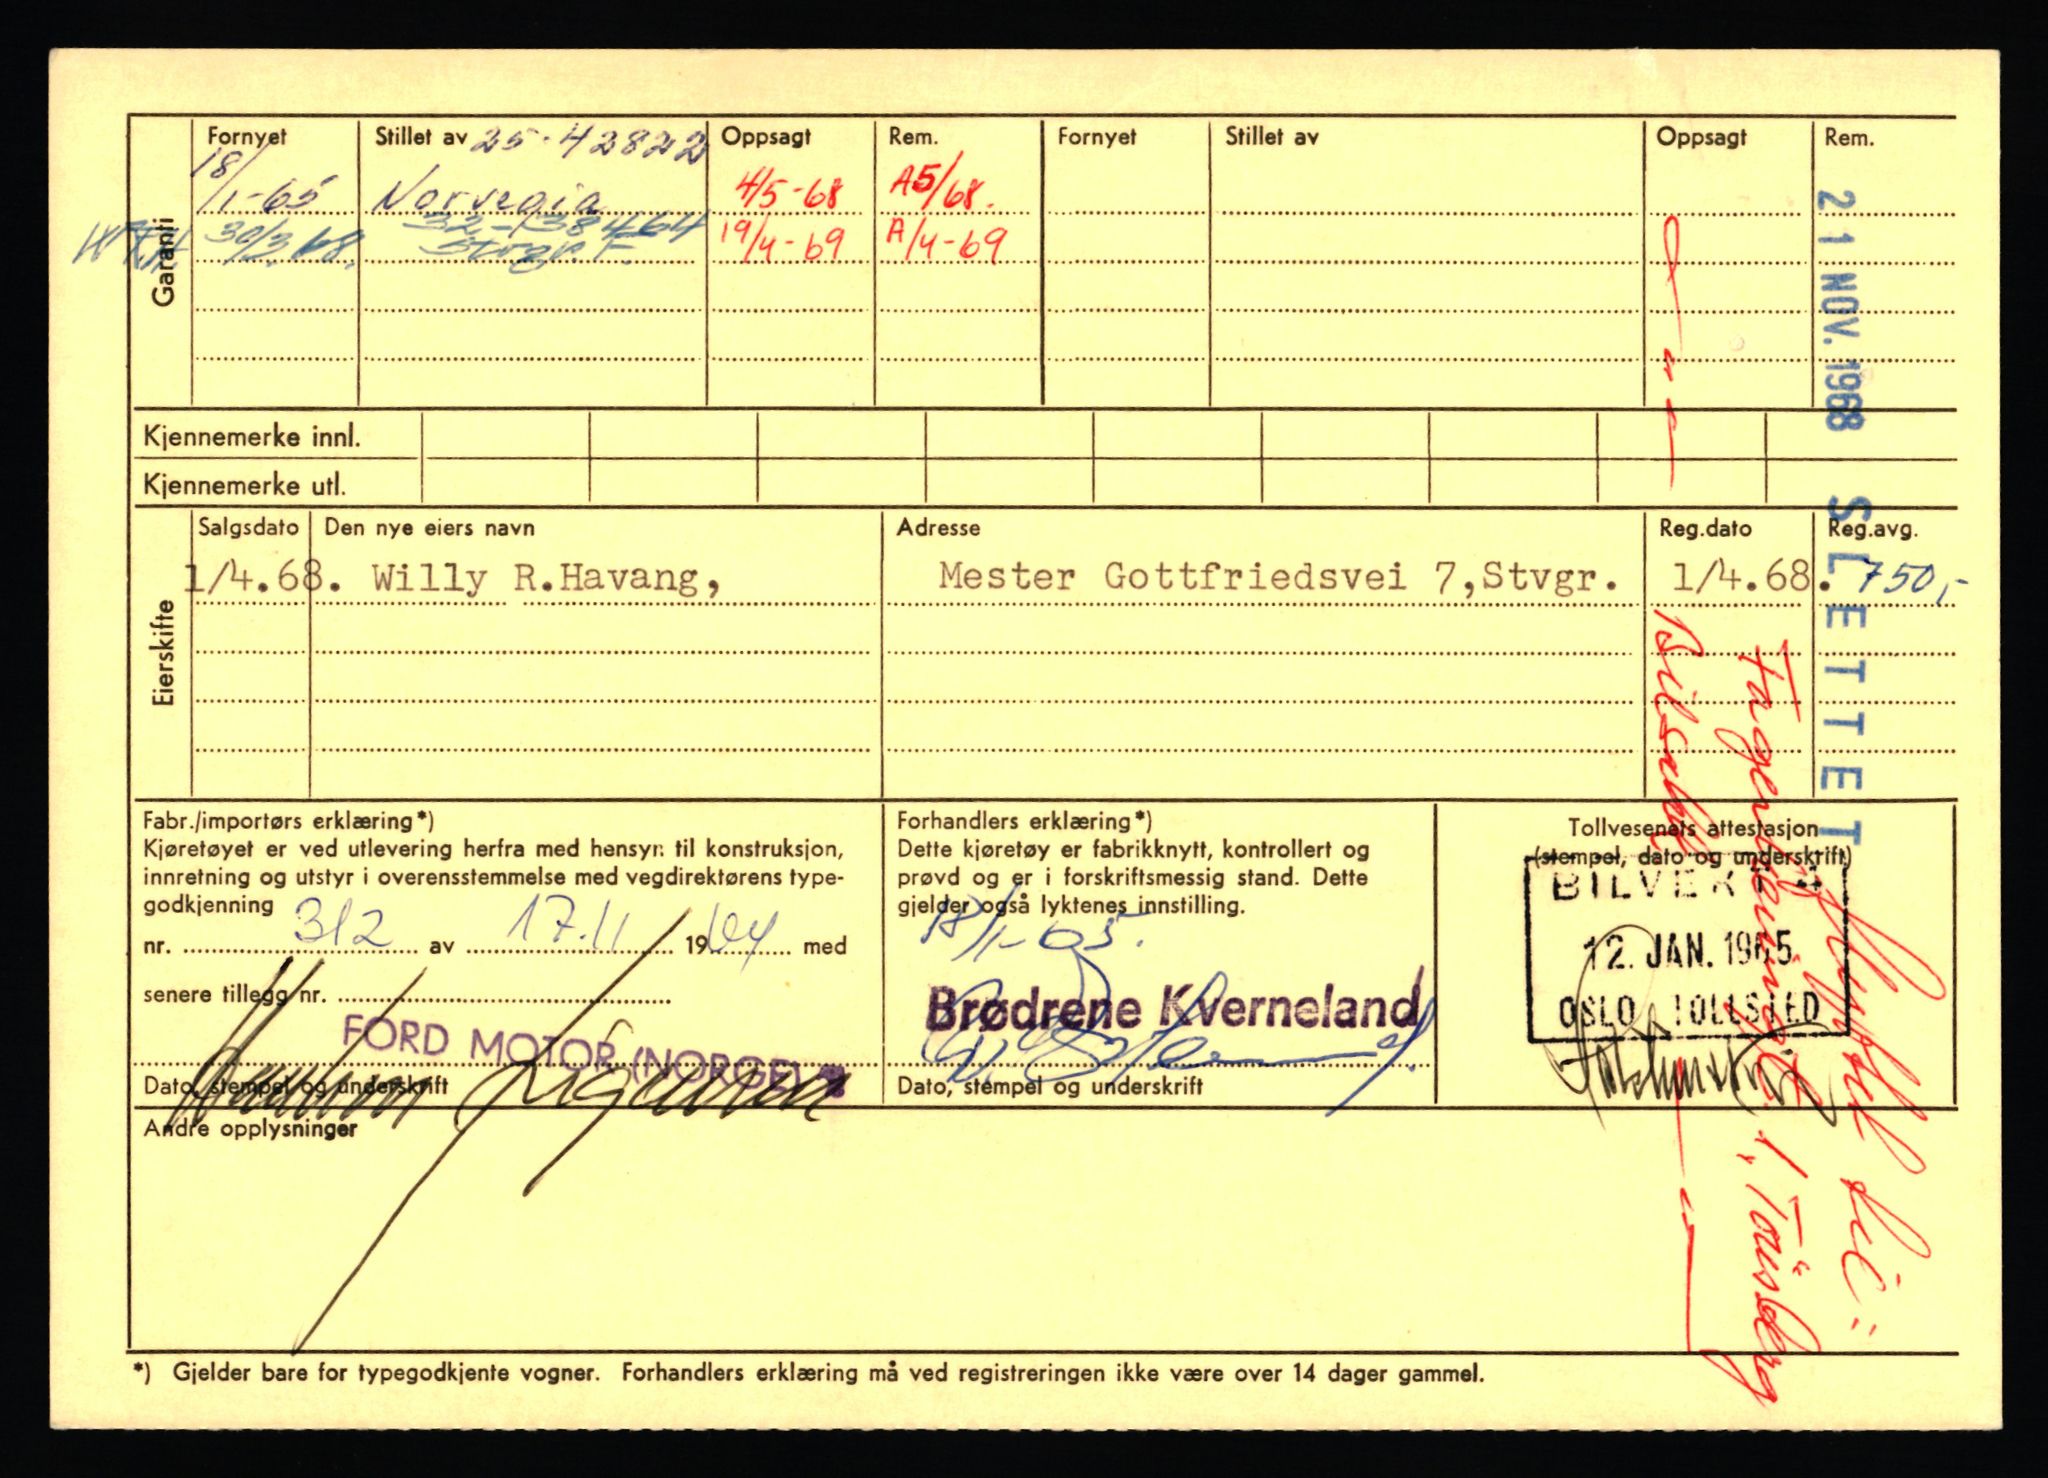 Garanti
Fornyet Stillet av 25-42822 Oppsagt Rem. Fornyet Stillet av Oppsagt Rem.
18/1-65 Norvegia 4/5-68 A5/68.
30/3.68. 32-138464 Stvgr. F. 19/4-69 A/4-69
Kjennemerke innl.
Kjennemerke utl.
Eierskifte
Salgsdato Den nye eiers navn Adresse Reg.dato Reg.avg.
1/4.68. Willy R.Havang, Mester Gottfriedsvei 7,Stvgr. 1/4.68. 750,-
21 NOV. 1968 SLETTET
Fabr./importørs erklæring*)
Kjøretøyet er ved utlevering herfra med hensyn til konstruksjon,
innretning og utstyr i overensstemmelse med vegdirektørens type-
godkjenning
nr. 312 av 17.11 1964 med
senere tillegg nr.
FORD MOTOR (NORGE)
Dato, stempel og underskrift
Forhandlers erklæring*)
Dette kjøretøy er fabrikknytt, kontrollert og
prøvd og er i forskriftsmessig stand. Dette
gjelder også lyktenes innstilling.
18/1-65.
Brødrene Kverneland
Dato, stempel og underskrift
Tollvesenets attestasjon
(stempel, dato og underskrift)
12. JAN. 1965
OSLO TOLLSTED
Andre opplysninger
*) Gjelder bare for typegodkjente vogner. Forhandlers erklæring må ved registreringen ikke være over 14 dager gammel.